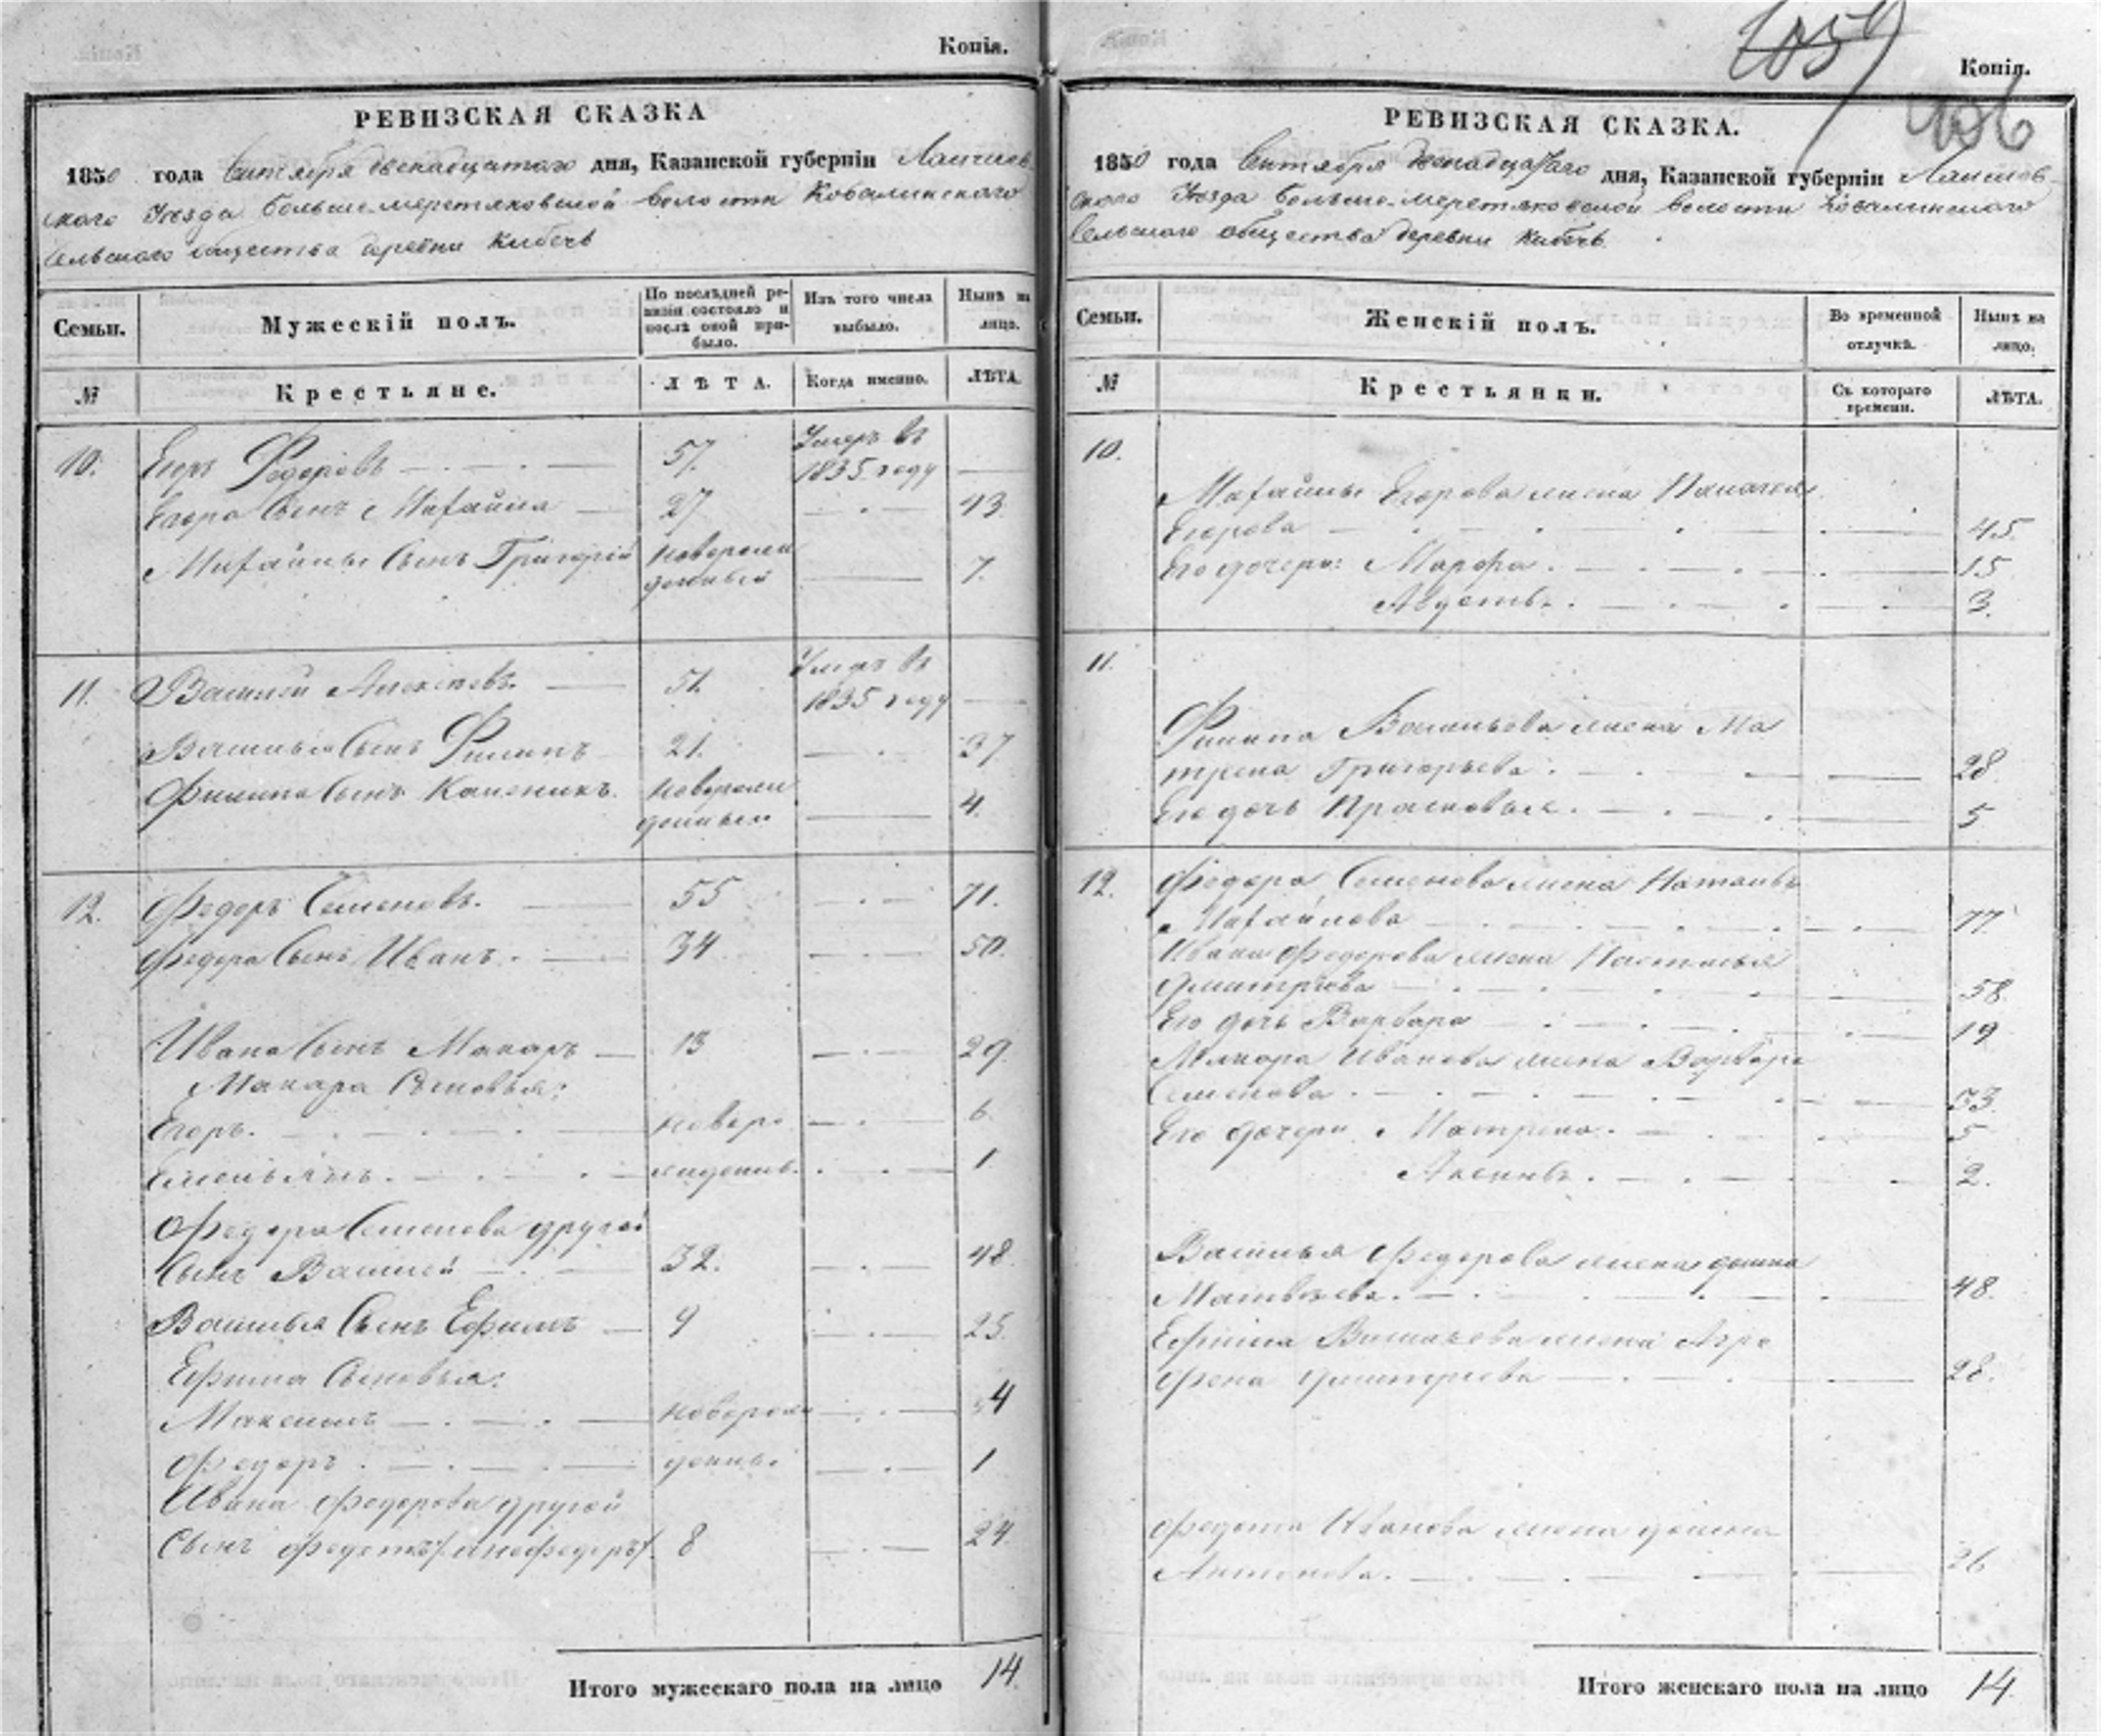 Копія.
РЕВИЗСКАЯ СКАЗКА
1850 года Сентября двенадцатаго дня, Казанской губерніи Лаишев
скаго Уѣзда больше-меретяковской волости Ковалинскаго
Сельскаго общества деревни Кибечь
Семьи.
Мужескій полъ.
По послѣдней ре-
визіи состояло и
послѣ оной при-
было.
Изъ того числа
выбыло.
Нынѣ на
лицо.
№
Крестьяне.
ЛѢТА.
Когда именно.
ЛѢТА.
10. Егоръ Федоровъ 57. Умеръ въ
1835 году
Егора Сынъ Михайла 27 43
Михайлы Сынъ Григорій новорож
денный 7.
11. Василій Алексѣевъ 51. Умеръ въ
1835 году
Василья Сынъ Филипъ 21. 37
Филипа Сынъ новорож
денный 4.
12. Федоръ Семеновъ. 55 71.
Федора Сынъ Иванъ. 34 50.
Ивана Сынъ Макаръ 13 29.
Макара Сыновья:
Егоръ. новоро 6.
Емельянъ. жденны. 1
Федора Семенова другой
Сынъ Василій 32. 48.
Василья Сынъ Ефимъ 9 25.
Ефима Сыновья:
Максимъ новорож 4
Федоръ денны. 1
Ивана Федорова другой
Сынъ Федотъ/онъ Федоръ/ 8 24.
Итого мужескаго пола на лицо 14.
1059
406
Копія.
РЕВИЗСКАЯ СКАЗКА.
1850 года Сентября двенадцатаго дня, Казанской губерніи Лаишев
скаго Уѣзда больше-меретяковской волости Ковалинскаго
Сельскаго общества деревни Кибечь
Семьи.
Женскій полъ.
Во временной
отлучкѣ.
Нынѣ на
лицо.
№
Крестьянки.
Съ котораго
времени.
ЛѢТА.
10.
Михайлы Егорова жена Палагея
Егорова 45.
Его дочери: Марфа. 15
Авдотья. 3.
11.
Филипа Васильева жена Ма
трена Григорьева. 28.
Его дочь Прасковья. 5
12. Федора Семенова жена Наталья
Михайлова 77.
Ивана Федорова жена Настасья
Дмитріева 58
Его дочь Варвара 19
Макара Иванова жена Варвара
Семенова. 33.
Его дочери Матрена. 5
Аксинья. 2.
Василья Федорова жена домна
Матвѣева. 48.
Ефима Васильева жена Агра
фена Дмитріева 28.
Федота Иванова жена домна
Антонова. 26
Итого женскаго пола на лицо 14.